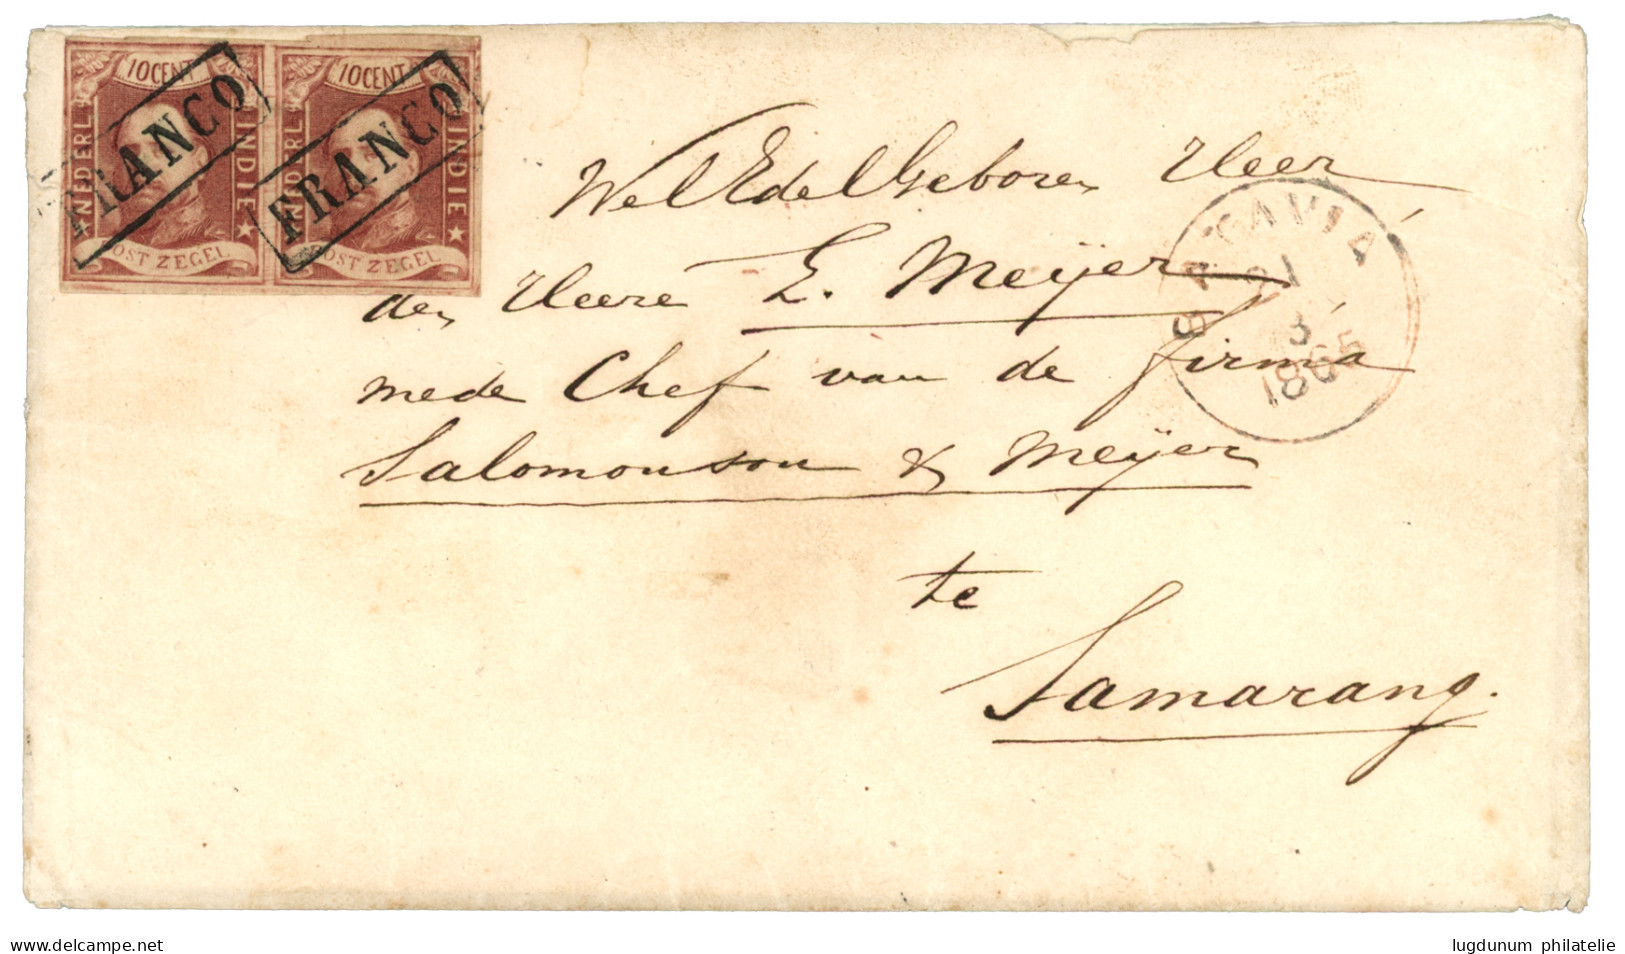 10 CENT
NEDERL.
INDIE
POST ZEGEL
FRANCO
10 CENT
NEDERL.
INDIE
POST ZEGEL
FRANCO
WelEdelGeboren Heer
den Heere E. Meijer
mede Chef van de firma
Salomonson & Meijer
te
Samarang.
BATAVIA
21
3
1865
www.delcampe.net
lugdunum philatelie